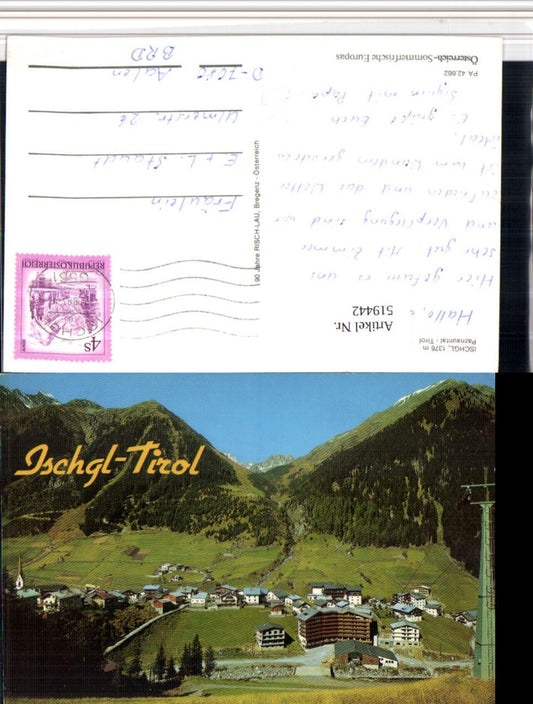 ISCHGL, 1376 m
Paznauntal - Tirol
Artikel Nr.
519442
Hallo,
Hier gefällt es uns
sehr gut. Mit Zimmer
und Verpflegung sind wir
zufrieden und das Wetter
ist zum Wandern geradezu
ideal.
Es grüßt Euch
Sigrun mit Papa
PA 42.662
Österreich-Sommerfrische Europas
90 Jahre RISCH-LAU, Bregenz - Österreich
REPUBLIK ÖSTERREICH
4S
Fräulein
E + L. Staudt
Ulmerstr. 26
Aalen
BRD
Ischgl-Tirol